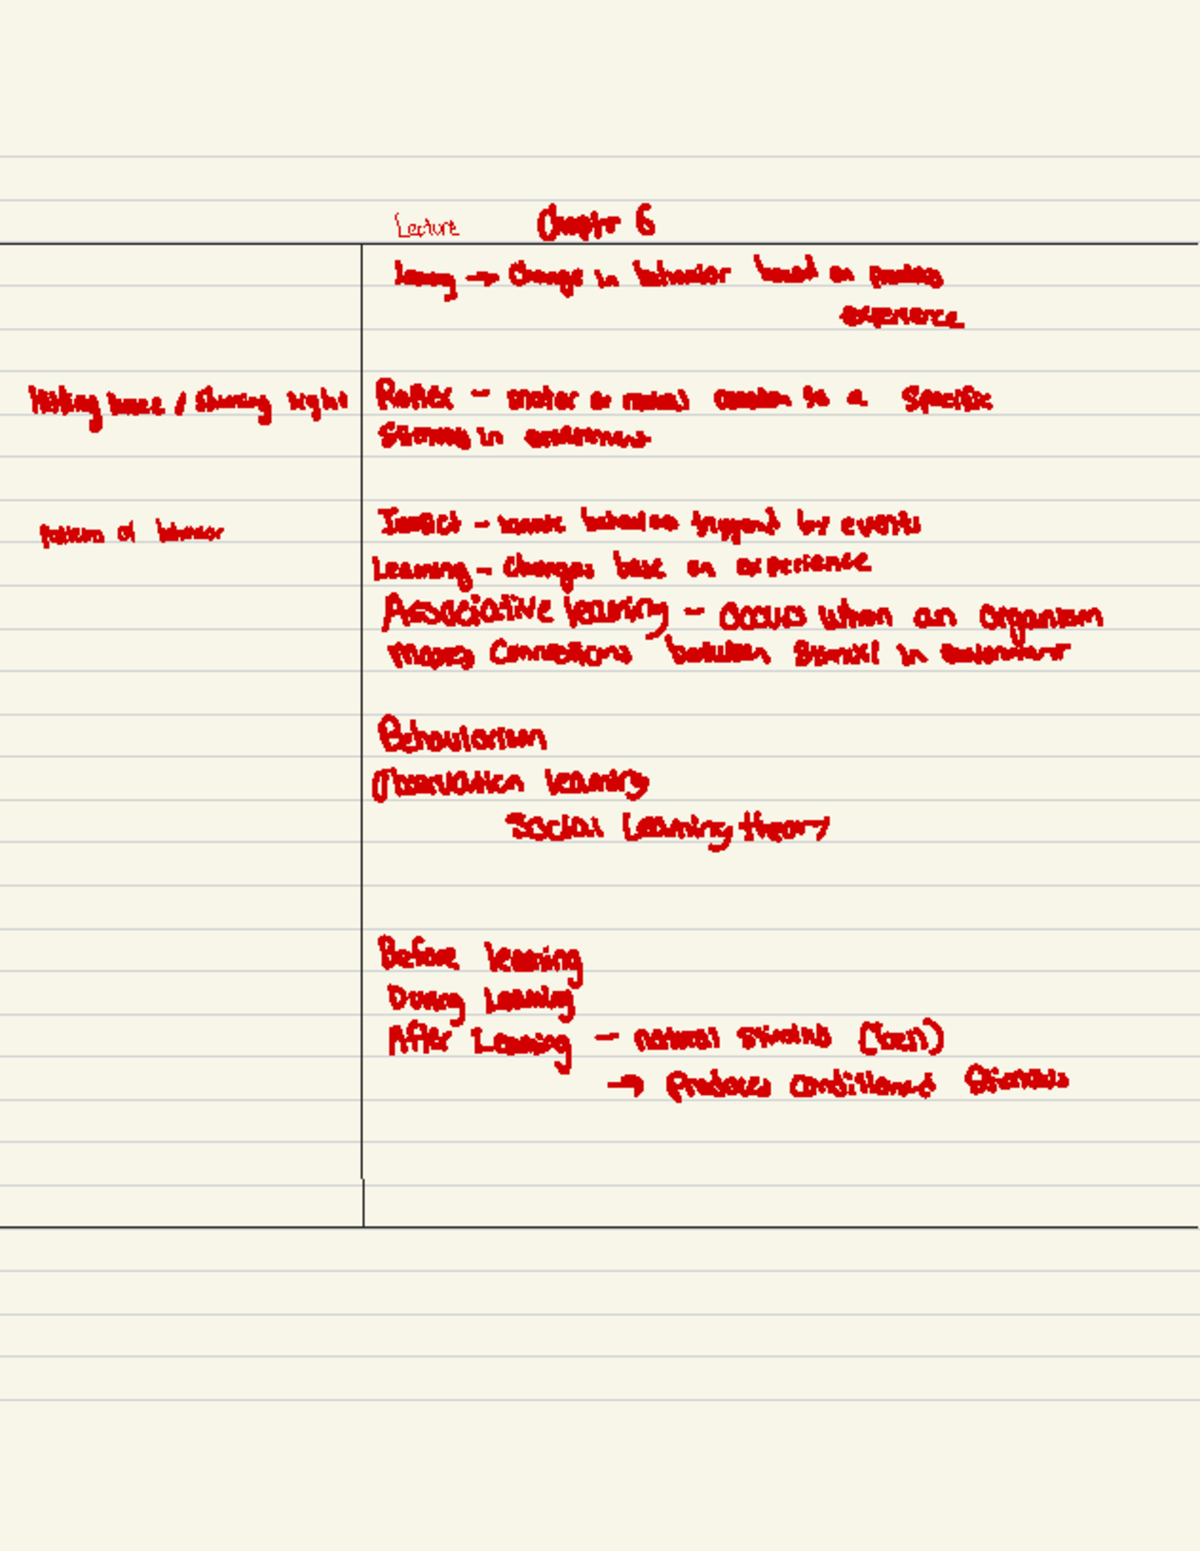 Lecture Chaptr 6
learning → Change in behavior based on previous
experience
Hitting knee / Shining light
Reflex - motor or neural reaction to a Specific
Stimulus in environment
Pattern of behavior
- innate behaviors triggered by events
Learning - Changes base on experience
Associative learning - occurs when an organism
makes Connections between Stimuli in environment
Behaviorism
Observation learning
Social Learning theory
Before learning
During Learning
After Learning - natural stimulus (bell)
→ Produces conditioned Stimulus